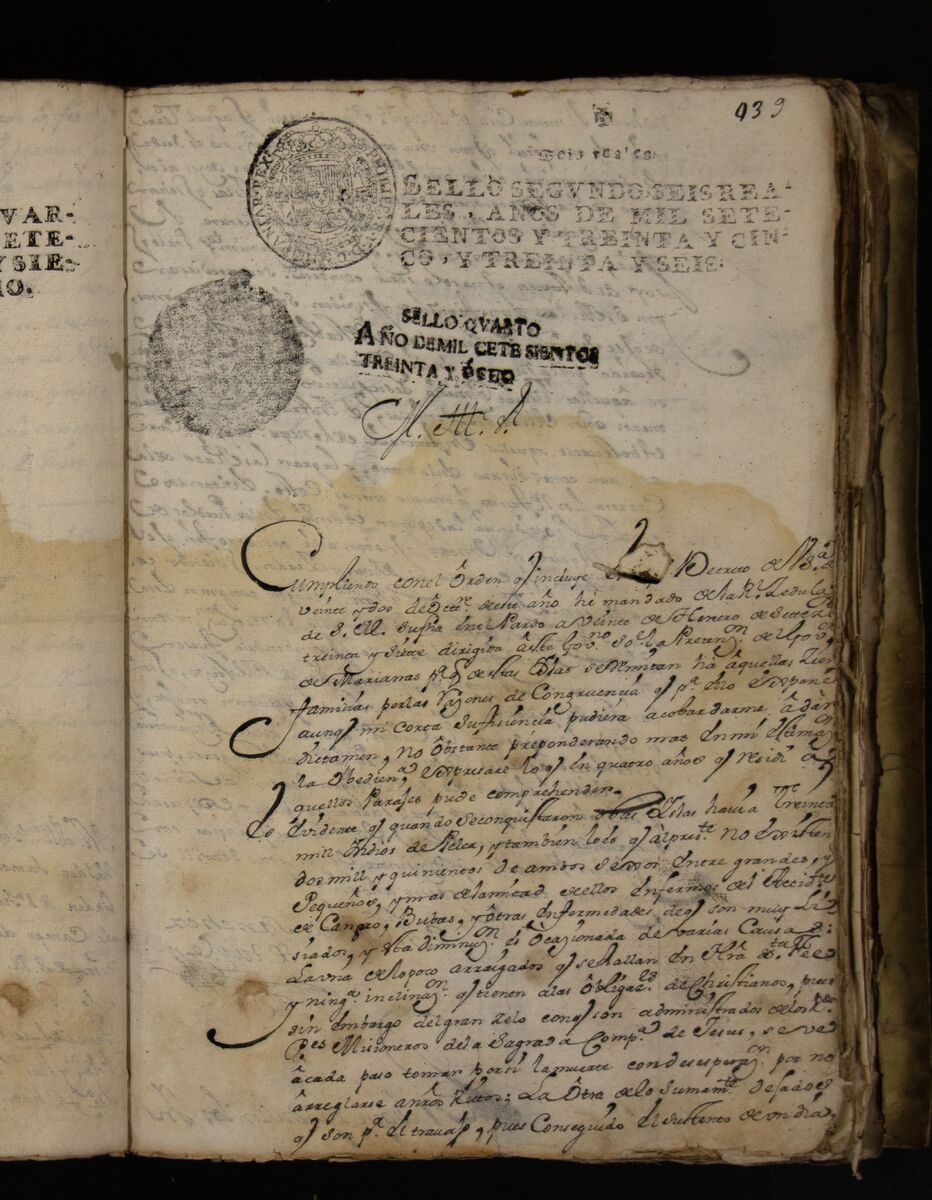 939
Seis reales
SELLO SEGVNDO SEIS REA-
LES, AÑOS DE MIL SETE-
CIENTOS Y TREINTA Y CIN-
CO, Y TREINTA Y SEIS.
VAR-
ETE-
Y SIE-
IO.
SELLO QVARTO
AÑO DE MIL CETE SIENTOS
TREINTA Y OCHO
M. Ill.e S.r
Cumpliendo con el Orden q.e incluye el Decreto de V.S.a de
veinte y dos de este año hé mandado de la R.l Zedula
de S. M. su fha en el Pardo a Veinte de Henero de Sette.s
treinta y Siete dirigida â este Gov.no so.e la Preten.on del Gov.or
de Marianas p.a q.e de estas Yslas se Remitan hâ aquellas Zien
familias por las razones de Congruencia q.e p.a ello Expone
y aunq.e mi corta Sufisiencia pudiera acobardarme â dàr
dictamen, no ôbstante preponderando mas en mi estima.on
la Obedien.a Expresaré lo q.e en quatro años q.e residî en â
quellos Parajes pude comprehender.
Es Evidente q.e quando se conquistaron Yslas havia Treinta
mill Yndios de Pelea, y tambien lo és q.e al pres.te no Existen
dos mill y quinientos de ambos Sexsos entre grandes, y
Pequeños, y mas de la mitad de ellos enfermos del Accid.te
de Cancro, Bubas, y ôtras enfermedades de q.e son muy Lis
siados, y esta diminu.on és Ocazionada de varias Causas:
La vna de lo poco arraigados q.e se hallan en Nrâ S.ta Fee
y ning.a inclina.on q.e tienen â las Obligas.s de Christianos, pues
sin embargo del gran zelo con q.e són administrados de los RR.
P.es Missioneros de la Sagrada Comp.a de Jesus, se ve
â cada paso tomar por sí la muerte con desespera.on por no
arreglarse a nrôs Ritos; La Otra de lo sumam.te dejados
q.e son p.a el travajo, pues Conseguido el sustento de vn dia,